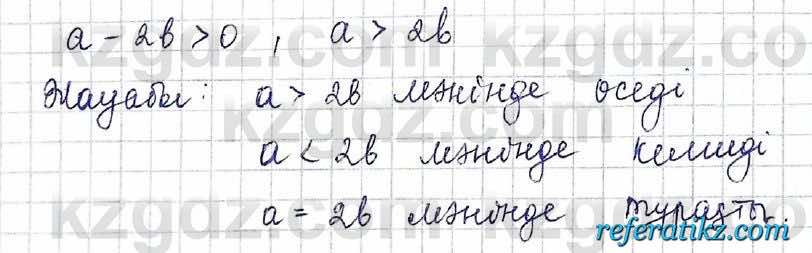 a - 2в > 0 , a > 2в
Жауабы: a > 2в мәнінде өседі
a < 2в мәнінде кемиді
a = 2в мәнінде тұрақты
kzgdz.com
referatikz.com